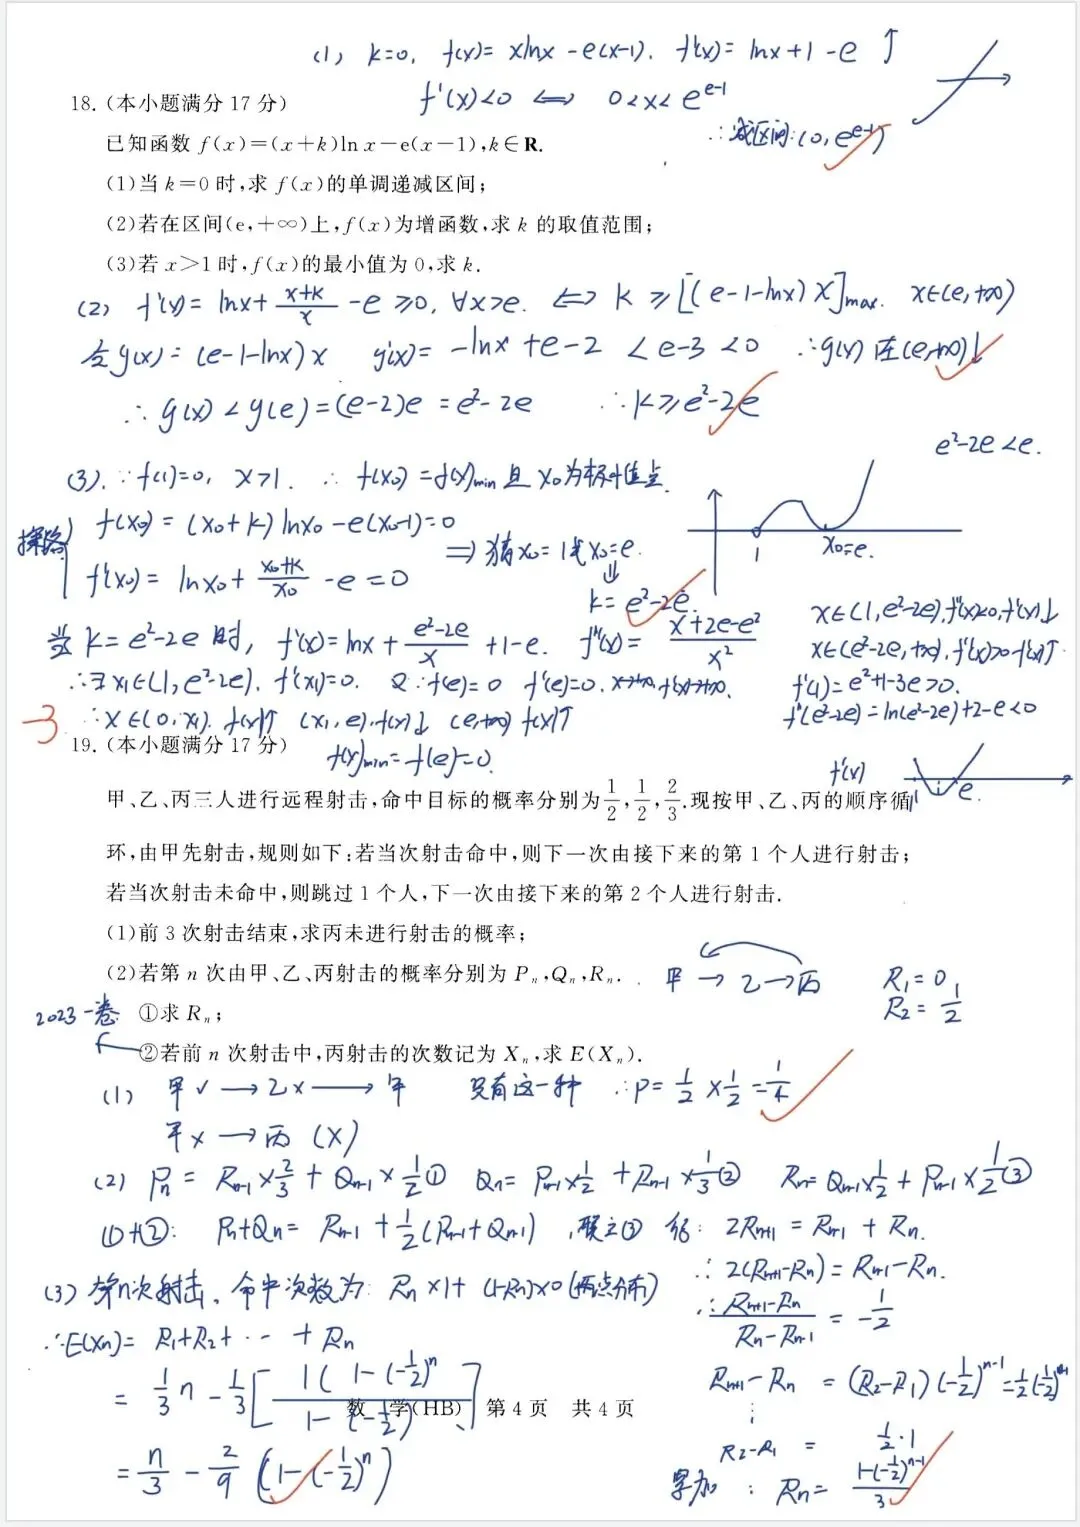 (1) k=0, f(x)= xlnx -e(x-1). f'(x)= lnx+1-e ↑
f'(x)<0 ⟺ 0<x<e^{e-1}
∴减区间:(0,e^{e-1})
18.(本小题满分 17 分)
已知函数 f(x)=(x+k)ln x-e(x-1),k∈R.
(1)当 k=0 时,求 f(x)的单调递减区间;
(2)若在区间(e,+∞)上,f(x)为增函数,求 k 的取值范围;
(3)若 x>1 时,f(x)的最小值为 0,求 k.
(2) f'(x)= lnx+\frac{x+k}{x}-e≥0, ∀x>e. ⟺ k≥[(e-1-lnx)x]max. x∈(e,+∞)
令g(x)= (e-1-lnx)x g'(x)= -lnx+e-2 <e-3<0 ∴g(x)在(e,+∞)↓
∴g(x)<g(e)=(e-2)e=e²-2e ∴k≥e²-2e
e²-2e<e.
(3).∵f(1)=0, x>1. ∴ f(x₀)=f(x)min 且 x₀为极小值点
探路
f(x₀)=(x₀+k)lnx₀-e(x₀-1)=0
f'(x₀)= lnx₀+\frac{x₀+k}{x₀}-e=0
⇒ 猜x₀=1或x₀=e.
⇓
k=e²-2e
1 x₀=e.
当k=e²-2e时, f'(x)=lnx+\frac{e²-2e}{x}+1-e. f''(x)=\frac{x+2e-e²}{x²}
x∈(1,e²-2e),f''(x)<0,f'(x)↓
x∈(e²-2e,+∞),f''(x)>0 f'(x)↑
∴∃x₁∈(1,e²-2e), f'(x₁)=0. 又∵f(e)=0 f'(e)=0. x→+∞,f'(x)→+∞.
f'(1)=e²+1-3e>0.
f'(e²-2e)=ln(e²-2e)+2-e<0
-3
∴x∈(0,x₁) f(x)↑ (x₁,e),f(x)↓ (e,+∞) f(x)↑
f(x)min=f(e)=0.
f'(x) 1 e.
19.(本小题满分 17 分)
甲、乙、丙三人进行远程射击,命中目标的概率分别为\frac{1}{2},\frac{1}{2},\frac{2}{3}.现按甲、乙、丙的顺序循
环,由甲先射击,规则如下:若当次射击命中,则下一次由接下来的第 1 个人进行射击;
若当次射击未命中,则跳过 1 个人,下一次由接下来的第 2 个人进行射击.
(1)前 3 次射击结束,求丙未进行射击的概率;
(2)若第 n 次由甲、乙、丙射击的概率分别为 Pₙ,Qₙ,Rₙ.
甲→乙→丙
R₁=0,
R₂=\frac{1}{2}
2023一卷
①求 Rₙ;
②若前 n 次射击中,丙射击的次数记为 Xₙ,求 E(Xₙ).
(1) 甲✓→乙×→甲 只有这一种 ∴P=\frac{1}{2}×\frac{1}{2}=\frac{1}{4}
甲×→丙 (×)
(2) Pₙ= Rₙ₋₁×\frac{2}{3}+Qₙ₋₁×\frac{1}{2}① Qₙ= Pₙ₋₁×\frac{1}{2}+Rₙ₋₁×\frac{1}{3}② Rₙ= Qₙ₋₁×\frac{1}{2}+Pₙ₋₁×\frac{1}{2}③
①+②: Pₙ+Qₙ= Rₙ₋₁+\frac{1}{2}(Pₙ₋₁+Qₙ₋₁),联立③ : 2Rₙ₊₁=Rₙ₋₁+Rₙ.
∴2(Rₙ₊₁-Rₙ)=Rₙ₋₁-Rₙ.
(3) 第n次射击,命中次数为: Rₙ×1+(1-Rₙ)×0(两点分布)
∴\frac{Rₙ₊₁-Rₙ}{Rₙ-Rₙ₋₁}=-\frac{1}{2}
∴E(Xₙ)= R₁+R₂+…+Rₙ
= \frac{1}{3}n-\frac{1}{3}[\frac{1(1-(-\frac{1}{2})^n}{1-(-\frac{1}{2})}]
Rₙ₊₁-Rₙ=(R₂-R₁)(-\frac{1}{2})^{n-1}=\frac{1}{2}(-\frac{1}{2})^{n-1}
数 学(HB) 第 4 页 共 4 页
⋮
R₂-R₁ = \frac{1}{2}·1
=\frac{n}{3}-\frac{2}{9}(1-(-\frac{1}{2})^n)
累加: Rₙ=\frac{1-(-\frac{1}{2})^{n-1}}{3}